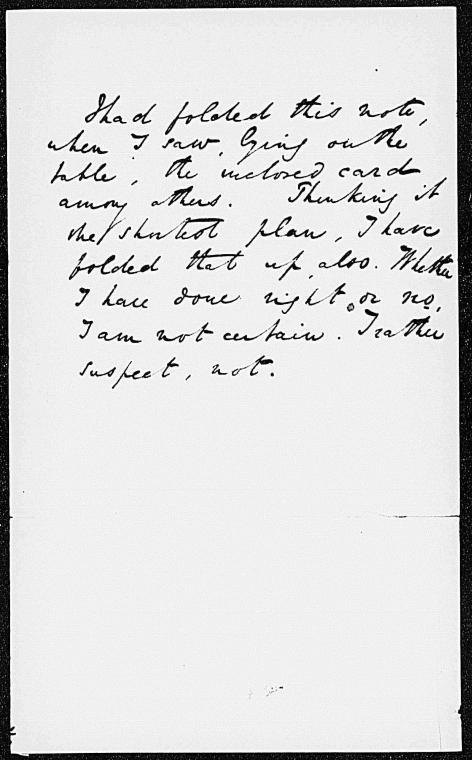 I had folded this note,
when I saw, lying on the
table, the inclosed card
among others. Thinking it
the shortest plan, I have
folded that up, also. Whether
I have done right, or no,
I am not certain. I rather
suspect, not.